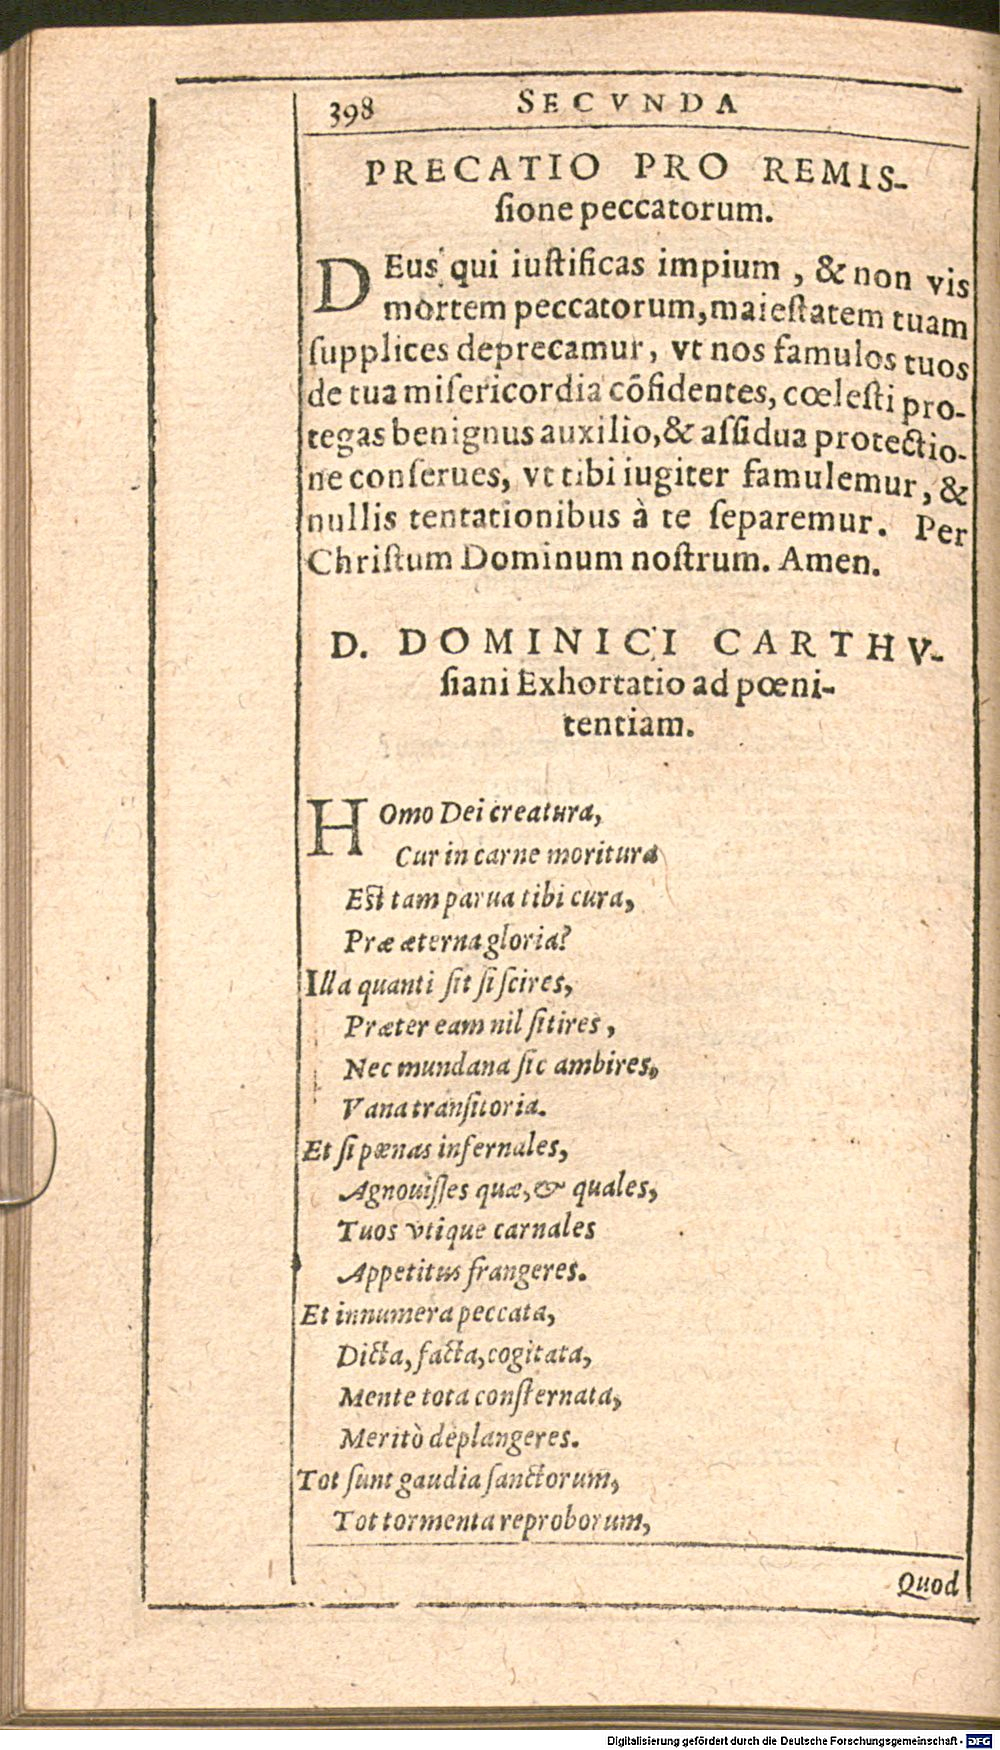 398 SECVNDA
PRECATIO PRO REMIS-
ſione peccatorum.
DEus qui iuſtificas impium, & non vis
mortem peccatorum, maieſtatem tuam
ſupplices deprecamur, vt nos famulos tuos
de tua miſericordia cõfidentes, cœleſti pro-
tegas benignus auxilio, & aſſidua protectio-
ne conſerues, vt tibi iugiter famulemur, &
nullis tentationibus à te ſeparemur. Per
Chriſtum Dominum noſtrum. Amen.
D. DOMINICI CARTHV-
ſiani Exhortatio ad pœni-
tentiam.
HOmo Dei creatura,
Cur in carne moritura
Eſt tam parua tibi cura,
Præ æterna gloria?
Illa quanti ſit ſi ſcires,
Præter eam nil ſitires,
Nec mundana ſic ambires,
Vana tranſitoria.
Et ſi pœnas infernales,
Agnouiſſes quæ, & quales,
Tuos vtique carnales
Appetitus frangeres.
Et innumera peccata,
Dicta, facta, cogitata,
Mente tota conſternata,
Meritò deplangeres.
Tot ſunt gaudia ſanctorum,
Tot tormenta reproborum,
Quod
Digitalisierung gefördert durch die Deutsche Forschungsgemeinschaft - DFG